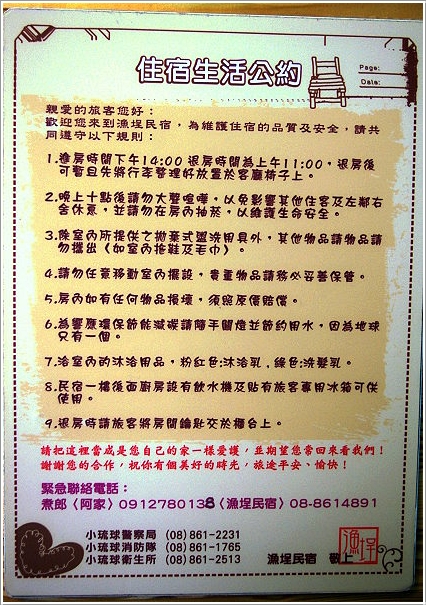 住宿生活公約
Page:
Date:
親愛的旅客您好：
歡迎您來到漁埕民宿，為維護住宿的品質及安全，請共
同遵守以下規則：
1.進房時間下午14:00 退房時間為上午11:00，退房後
可暫且先將行李整理好放置於客廳椅子上。
2.晚上十點後請勿大聲喧嘩，以免影響其他住客及左鄰右
舍休息，並請勿在房內抽菸，以維護生命安全。
3.除室內所提供之拋棄式盥洗用具外，其他物品請物品請
勿攜出〈如室內拖鞋及毛巾〉。
4.請勿任意移動室內擺設，貴重物品請務必妥善保管。
5.房內如有任何物品損壞，須照原價賠償。
6.為響應環保節能減碳請隨手關燈並節約用水，因為地球
只有一個。
7.浴室內的沐浴用品，粉紅色:沐浴乳，綠色:洗髮乳。
8.民宿一樓後面廚房設有飲水機及貼有旅客專用冰箱可供
使用。
9.退房時請旅客將房間鑰匙交於櫃台上。
請把這裡當成是您自己的家一樣愛護，並期望您常回來看我們！
謝謝您的合作，祝你有個美好的時光，旅途平安、愉快！
緊急聯絡電話：
煮郎〈阿家〉0912780138〈漁埕民宿〉08-8614891
小琉球警察局 (08)861-2231
小琉球消防隊 (08)861-1765
小琉球衛生所 (08)861-2513
漁埕民宿 敬上
漁埕